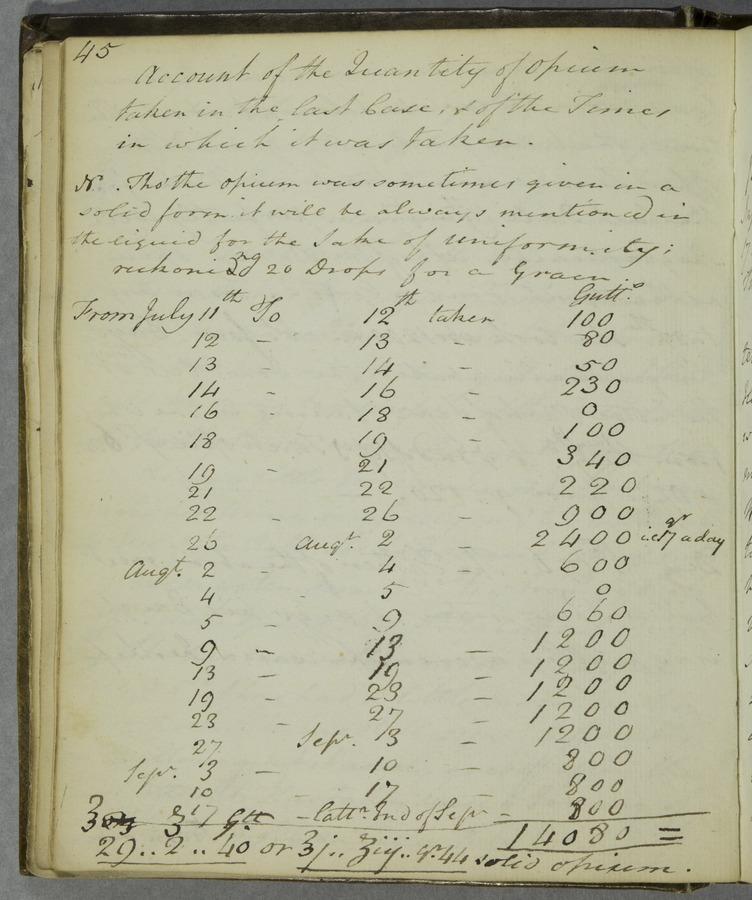 45
Account of the Quantity of Opium
taken in the last Case, & of the Times
in which it was taken.
N. Tho' the opium was sometimes given in a
solid form it will be always mentioned in
the liquid for the sake of uniformity;
reckoning 20 Drops for a Grain.
Gutt.
From July 11th To 12th taken 100
12 - 13 - 80
13 14 - 50
14 - 16 - 230
16 - 18 - 0
18 19 - 100
19 - 21 340
21 22 220
22 - 26 - 900
26 Augt. 2 - 2400 i.e. 17 gr a day
Augt. 2 - 4 - 600
4 - 5 0
5 9 660
9 - 13 - 1200
13 - 19 - 1200
19 23 - 1200
23 - 27 - 1200
27 Sepr. 3 - 1200
Sepr. 3 - 10 - 800
10 17 800
17 - latter End of Sepr - 800
14080 =
℥ ʒ gtt
29..2..40 or ℥j.. ʒiij.. gr.44 solid opium.